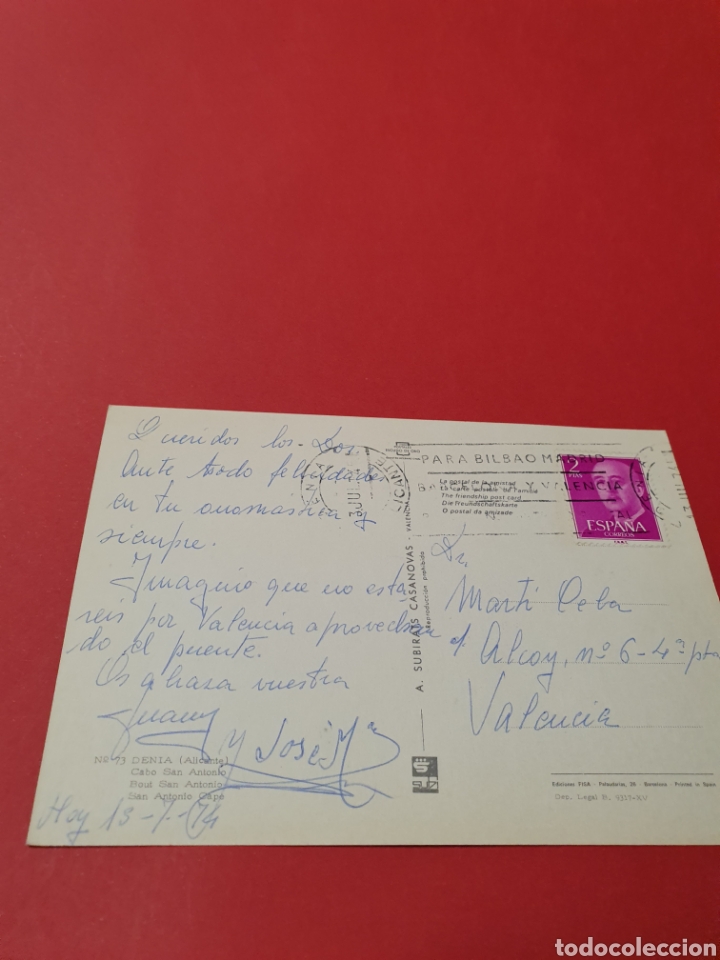 Queridos los Dos.
Ante todo felicidades
en tu onomastica y
siempre.
Imagino que no esta
reis por Valencia aprovechan
do el puente.
Os abraza vuestra
Juany y José Mª
Nº 73 DENIA (Alicante)
Cabo San Antonio
Bout San Antonio
San Antonio Cape
Hoy 13-7-74
A. SUBIRATS CASANOVAS - VALENCIA
Reproducción prohibida
PARA BILBAO MADRID
BARCELONA Y VALENCIA
La postal de la amistad
La carte postale de l'amitié
The friendship post card
Die freundschaftskarte
O postal da amizade
2
PTAS
ESPAÑA
CORREOS
Dr.
Martí Ceba
c/. Alcoy, nº 6-4ª pta
Valencia
Ediciones FISA - Palaudarias, 26 - Barcelona - Printed in Spain
Dep. Legal B. 9315-XV
todocoleccion